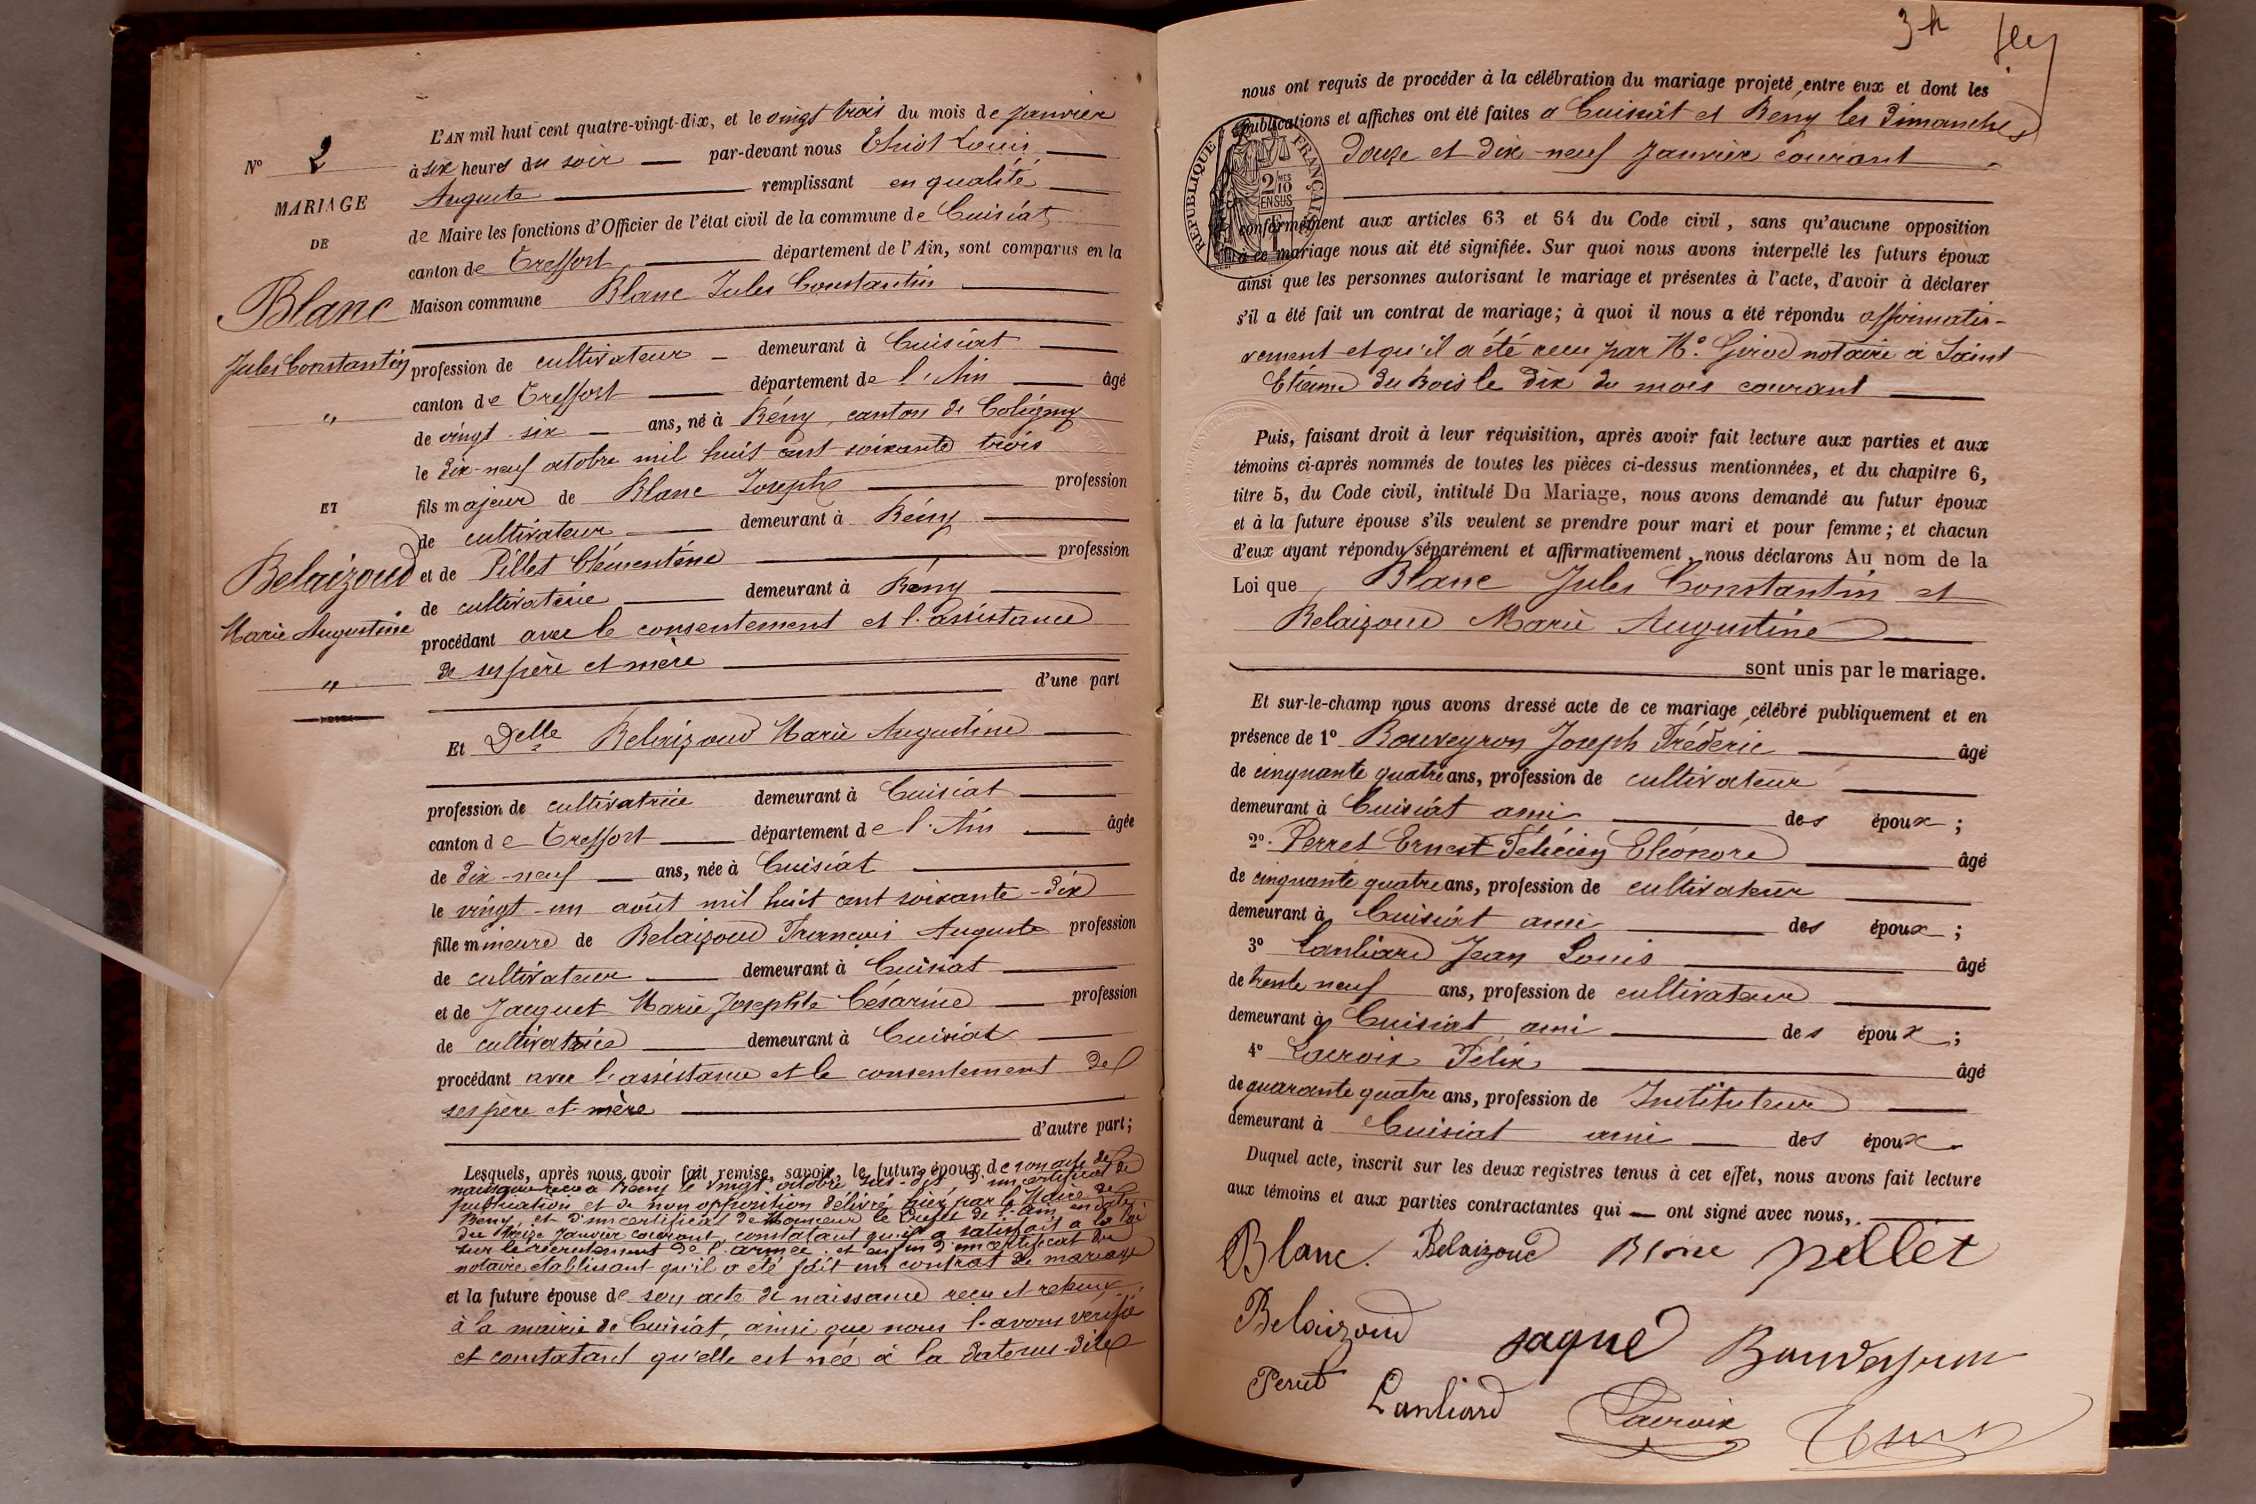 L'AN mil huit cent quatre-vingt-dix, et le vingt trois du mois de Janvier
à six heures du soir — par-devant nous Thiot Louis
Auguste remplissant en qualité
de Maire les fonctions d'Officier de l'état civil de la commune de Cuisiat
canton de Treffort département de l'Ain, sont comparus en la
Maison commune Blanc Jules Constantin
N° 2
MARIAGE
DE
Blanc
Jules Constantin
"
ET
Belaizoud
Marie Augustine
"
profession de cultivateur — demeurant à Cuisiat
canton de Treffort département de l'Ain âgé
de vingt-six — ans, né à Bény, canton de Coligny
le dix-neuf octobre mil huit cent soixante trois
fils majeur de Blanc Joseph profession
de cultivateur demeurant à Bény
et de Pillet Clémentine profession
de cultivatrice demeurant à Bény
procédant avec le consentement et l'assistance
de ses père et mère
d'une part
Et Delle Belaizoud Marie Augustine
profession de cultivatrice demeurant à Cuisiat
canton de Treffort département de l'Ain âgée
de dix-neuf — ans, née à Cuisiat
le vingt-un août mil huit cent soixante-dix
fille mineure de Belaizoud François Auguste profession
de cultivateur demeurant à Cuisiat
et de Jacquet Marie Josephte Césarine profession
de cultivatrice demeurant à Cuisiat
procédant avec l'assistance et le consentement de
ses père et mère
d'autre part;
Lesquels, après nous avoir fait remise, savoir, le futur époux de son acte de
naissance reçu à Bény le vingt octobre sus-dit, d'un certificat de
publication et de non opposition délivré hier par le Maire de
Bény, et d'un certificat de Monsieur le Préfet de l'Ain, en date
du treize Janvier courant, constatant qu'il a satisfait à la loi
sur le recrutement de l'armée, et enfin d'un certificat du
notaire établissant qu'il a été fait un contrat de mariage
et la future épouse de son acte de naissance reçu et retenu
à la mairie de Cuisiat, ainsi que nous l'avons vérifié
et constatant qu'elle est née à la date sus-dite
3h
nous ont requis de procéder à la célébration du mariage projeté entre eux et dont les
publications et affiches ont été faites à Cuisiat et Bény les Dimanches
douze et dix-neuf Janvier courant
RÉPUBLIQUE FRANÇAISE
2 MES
10
EN SUS
conformément aux articles 63 et 64 du Code civil, sans qu'aucune opposition
à ce mariage nous ait été signifiée. Sur quoi nous avons interpellé les futurs époux
ainsi que les personnes autorisant le mariage et présentes à l'acte, d'avoir à déclarer
s'il a été fait un contrat de mariage; à quoi il nous a été répondu affirmati-
vement et qu'il a été reçu par Me. Girod notaire à Saint
Etienne du Bois le dix du mois courant
Puis, faisant droit à leur réquisition, après avoir fait lecture aux parties et aux
témoins ci-après nommés de toutes les pièces ci-dessus mentionnées, et du chapitre 6,
titre 5, du Code civil, intitulé Du Mariage, nous avons demandé au futur époux
et à la future épouse s'ils veulent se prendre pour mari et pour femme; et chacun
d'eux ayant répondu séparément et affirmativement, nous déclarons Au nom de la
Loi que Blanc Jules Constantin et
Belaizoud Marie Augustine
sont unis par le mariage.
Et sur-le-champ nous avons dressé acte de ce mariage célébré publiquement et en
présence de 1° Bouveyron Joseph Fréderic âgé
de cinquante quatre ans, profession de cultivateur
demeurant à Cuisiat ami des époux;
2° Perret Ernest Félicien Eléonore âgé
de cinquante quatre ans, profession de cultivateur
demeurant à Cuisiat ami des époux;
3° Lanliard Jean Louis âgé
de trente neuf ans, profession de cultivateur
demeurant à Cuisiat ami des époux;
4° Lacroix Félix âgé
de quarante quatre ans, profession de Instituteur
demeurant à Cuisiat ami — des époux.
Duquel acte, inscrit sur les deux registres tenus à cet effet, nous avons fait lecture
aux témoins et aux parties contractantes qui — ont signé avec nous,.
Blanc. Belaizoud Blanc pillet
Belaizoud Jaque Bouveyron
Perret Lanliard Lacroix